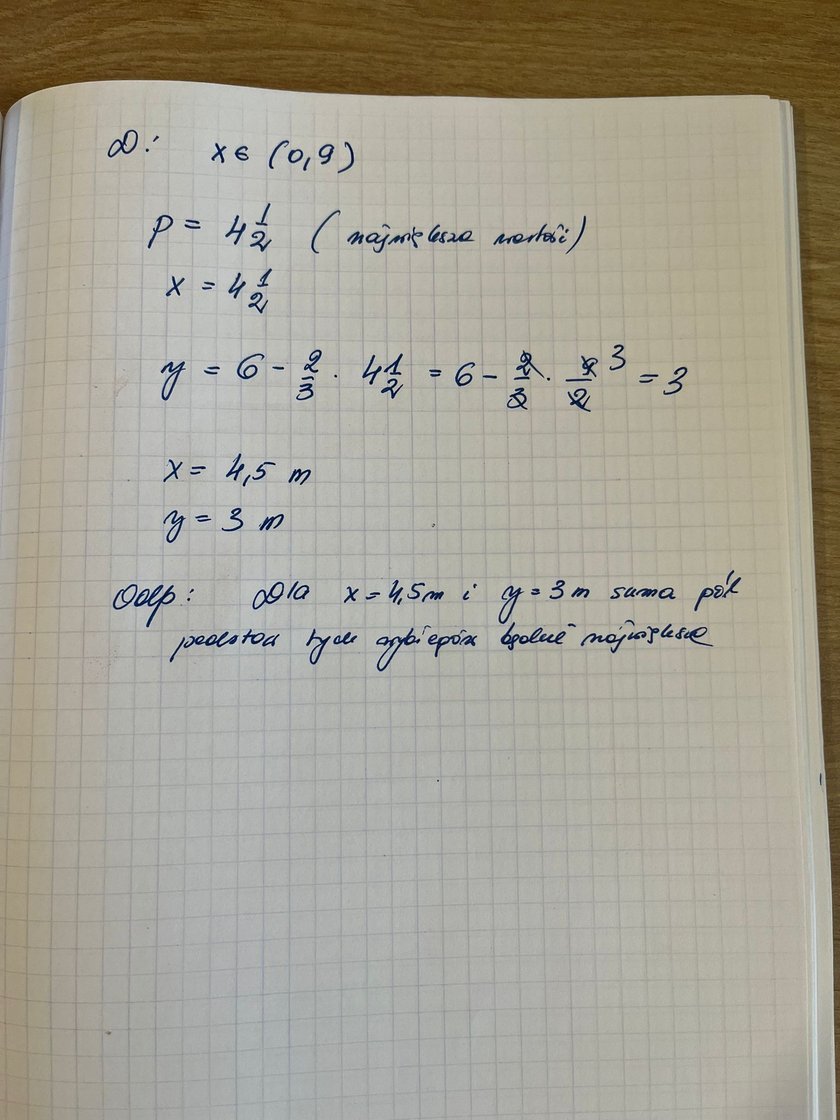 D: x ∈ (0,9)
p = 4 1/2 (największa wartość)
x = 4 1/2
y = 6 - 2/3 · 4 1/2 = 6 - 2/3 · 9/2 3 = 3
x = 4,5 m
y = 3 m
Odp: Dla x = 4,5 m i y = 3 m suma pól
podstaw tych wybiegów będzie największa